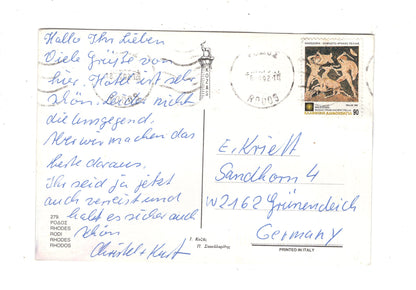 Hallo Ihr Lieben
Viele Grüße von
hier. Hotel ist sehr
schön. Leider nicht
die Umgegend.
Aber wir machen das
beste daraus.
Ihr seid ja jetzt
auch verreist und
habt es sicher auch
schön
Christel + Kurt
275
ΡΟΔΟΣ
RHODES
RODI
RHODES
RHODOS
ΡΟΔΟΣ
RODOS
90
E. Kriett
Sandhorn 4
W2162 Grünendeich
Germany
PRINTED IN ITALY